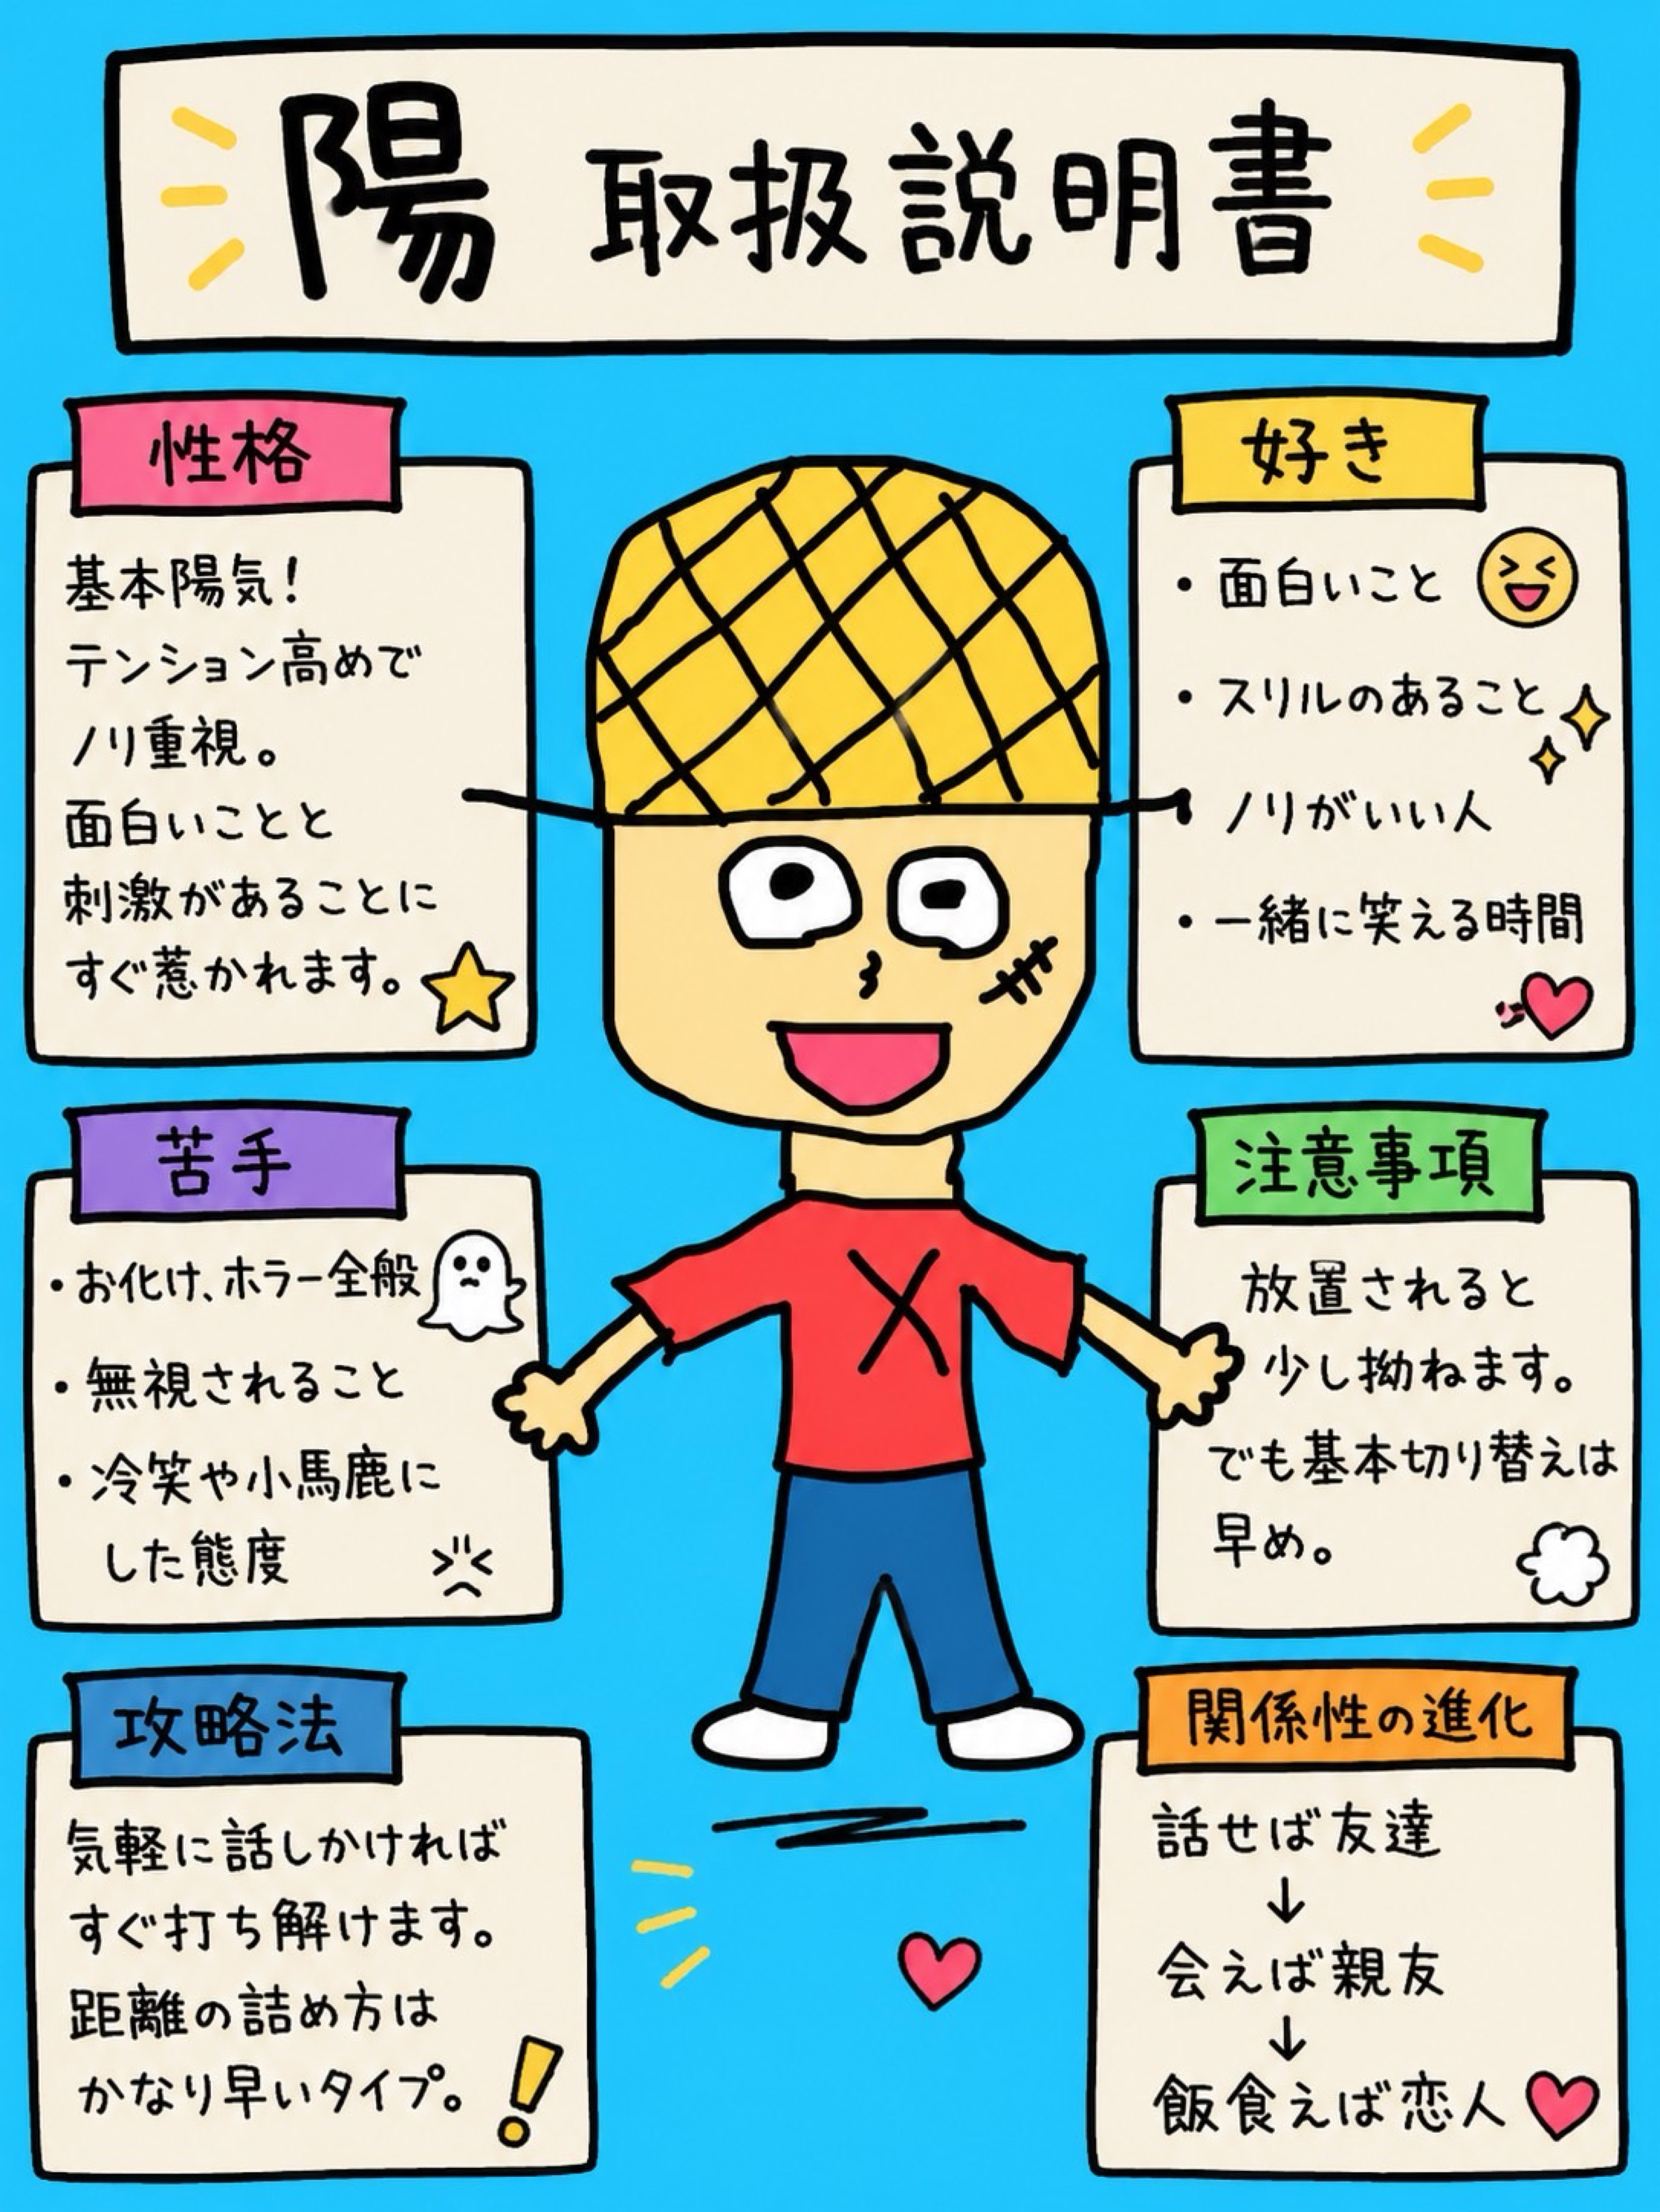 陽 取扱説明書
性格
基本陽気!
テンション高めで
ノリ重視。
面白いことと
刺激があることに
すぐ惹かれます。
好き
・面白いこと
・スリルのあること
・ノリがいい人
・一緒に笑える時間
苦手
・お化け、ホラー全般
・無視されること
・冷笑や小馬鹿に
した態度
注意事項
放置されると
少し拗ねます。
でも基本切り替えは
早め。
攻略法
気軽に話しかければ
すぐ打ち解けます。
距離の詰め方は
かなり早いタイプ。
関係性の進化
話せば友達
↓
会えば親友
↓
飯食えば恋人